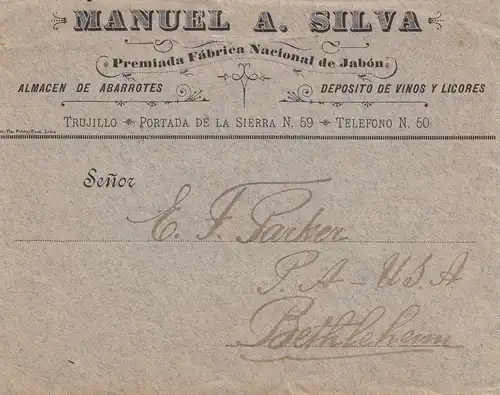 MANUEL A. SILVA
Premiada Fábrica Nacional de Jabón
ALMACEN DE ABARROTES DEPOSITO DE VINOS Y LICORES
TRUJILLO PORTADA DE LA SIERRA N. 59 TELEFONO N. 50
Señor
E. F. Parker
P. A - U S A
Bethlehem